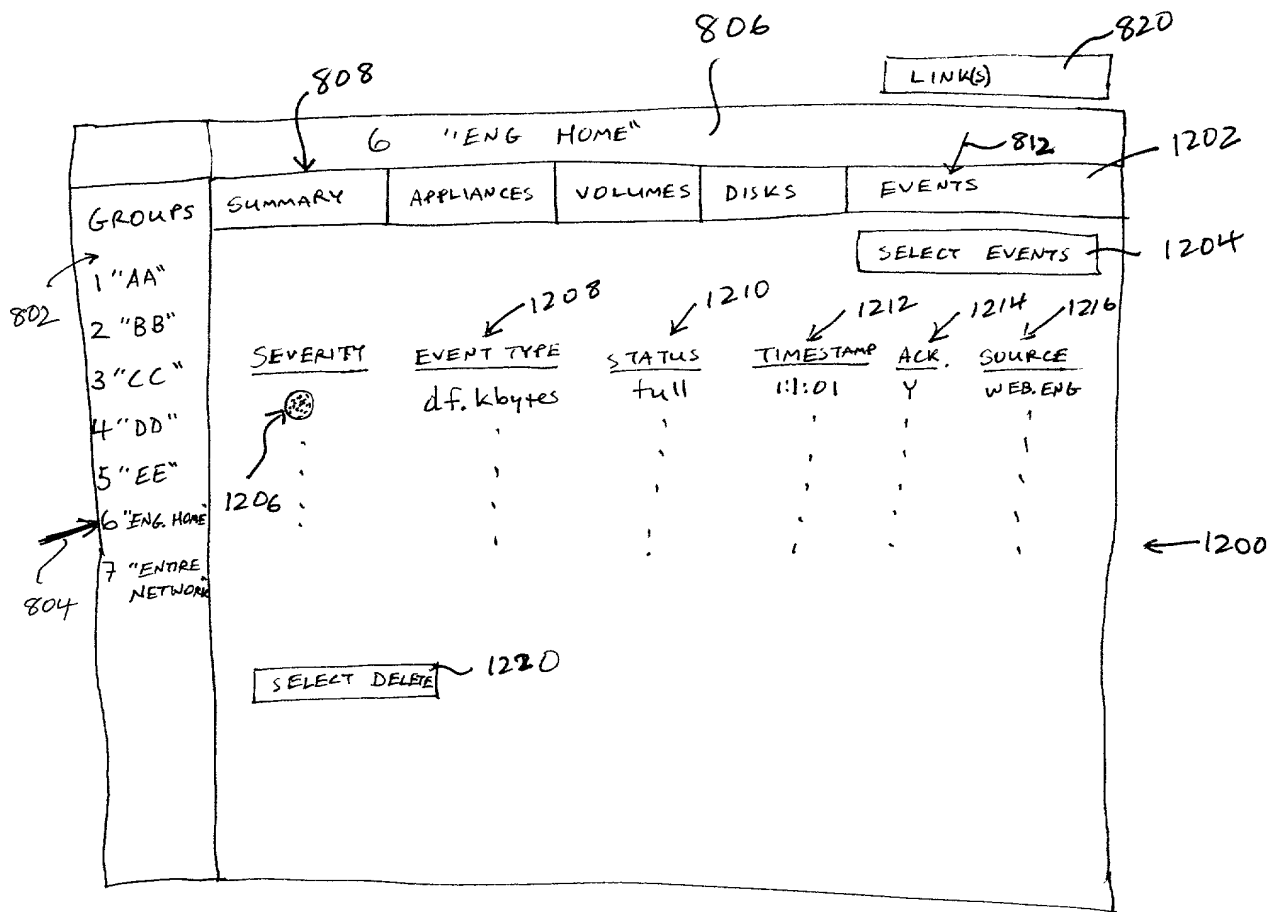 806
820
LINK(S)
808
6 "ENG HOME"
812
1202
GROUPS
SUMMARY APPLIANCES VOLUMES DISKS EVENTS
SELECT EVENTS
1204
802
1 "AA"
2 "BB"
3 "CC"
4 "DD"
5 "EE"
6 "ENG. HOME"
7 "ENTIRE
NETWORK"
804
1208
1210
1212
1214
1216
SEVERITY EVENT TYPE STATUS TIMESTAMP ACK. SOURCE
df.kbytes full 1:1:01 Y WEB.ENG
1206
1200
SELECT DELETE
1220